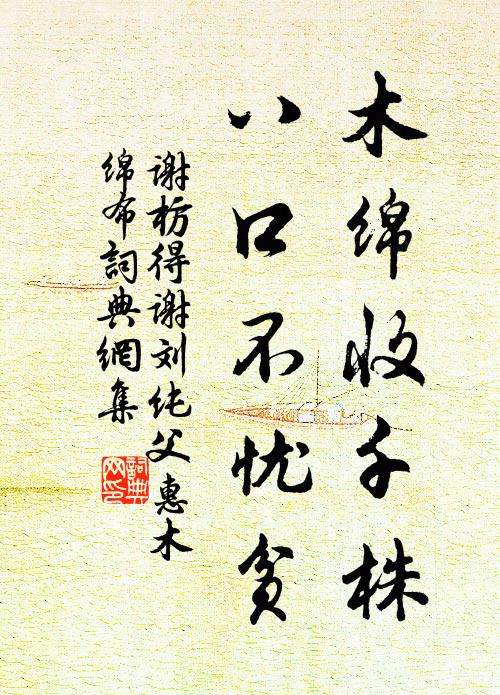 木绵收千株
八口不忧贫
谢枋得谢刘纯父惠木
绵布詞典網集
詞典
网印